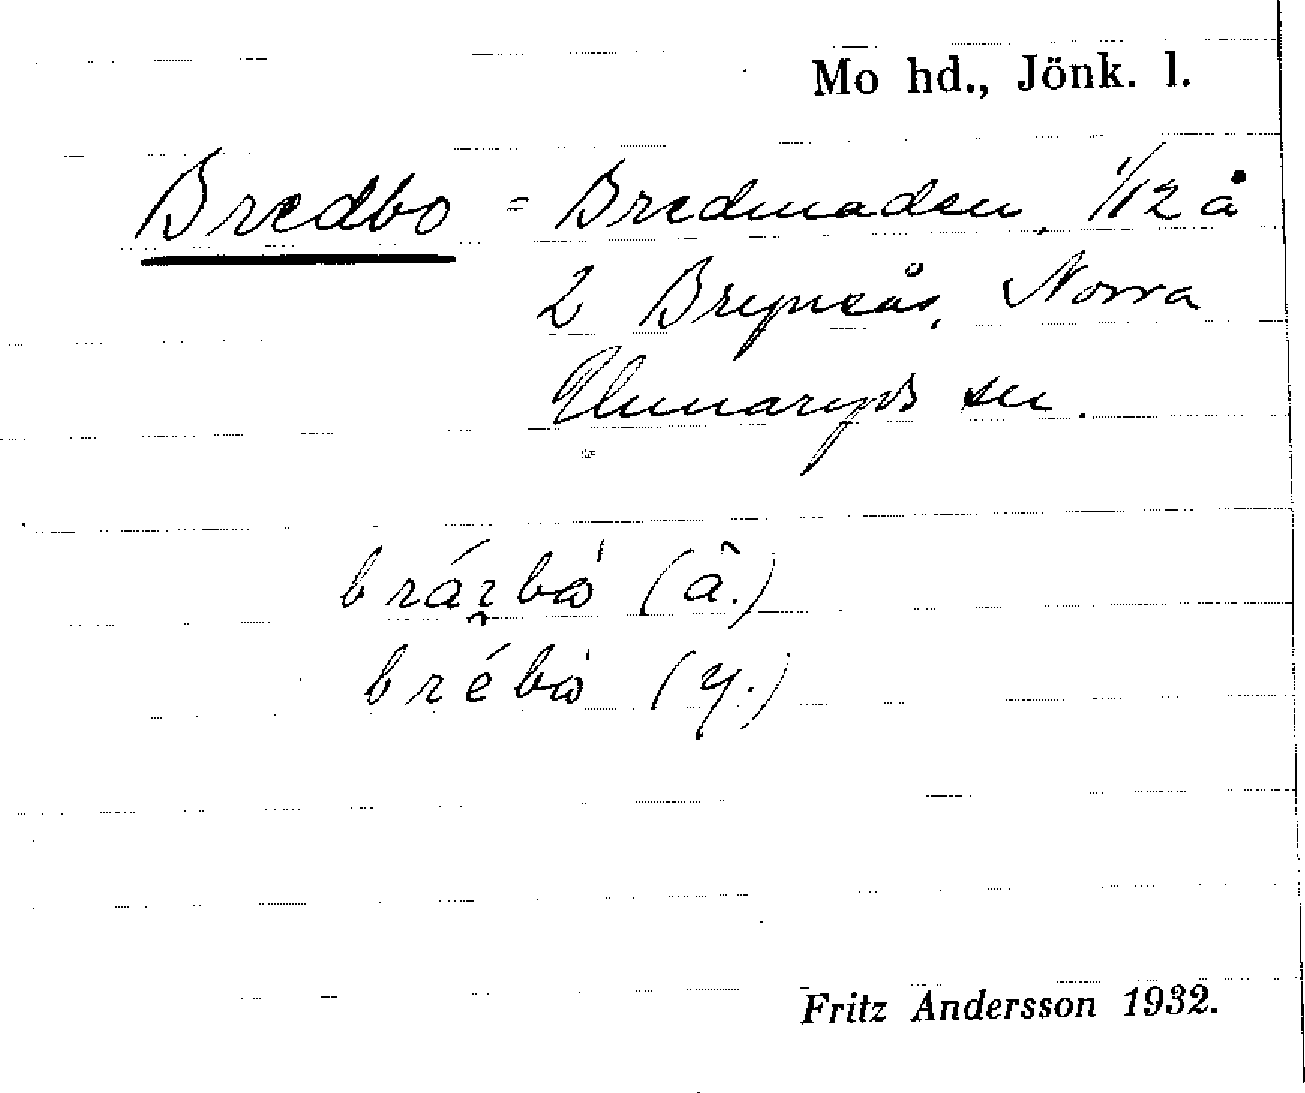 Mo hd., Jönk. l.
Bredbo = Bredmaden, 1/12 å
2 Bryneås, Norra
Unnaryds sn.
(ä.)
(y.)
Fritz Andersson 1932.